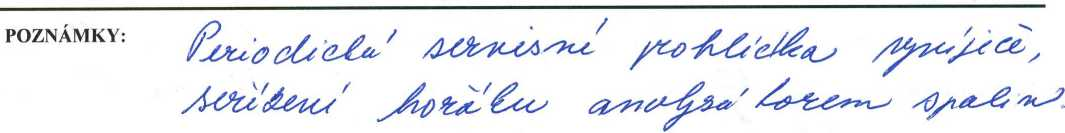 POZNÁMKY: Periodická servisní prohlídka vyvíječe,
seřízení hořáku analyzátorem spalin.